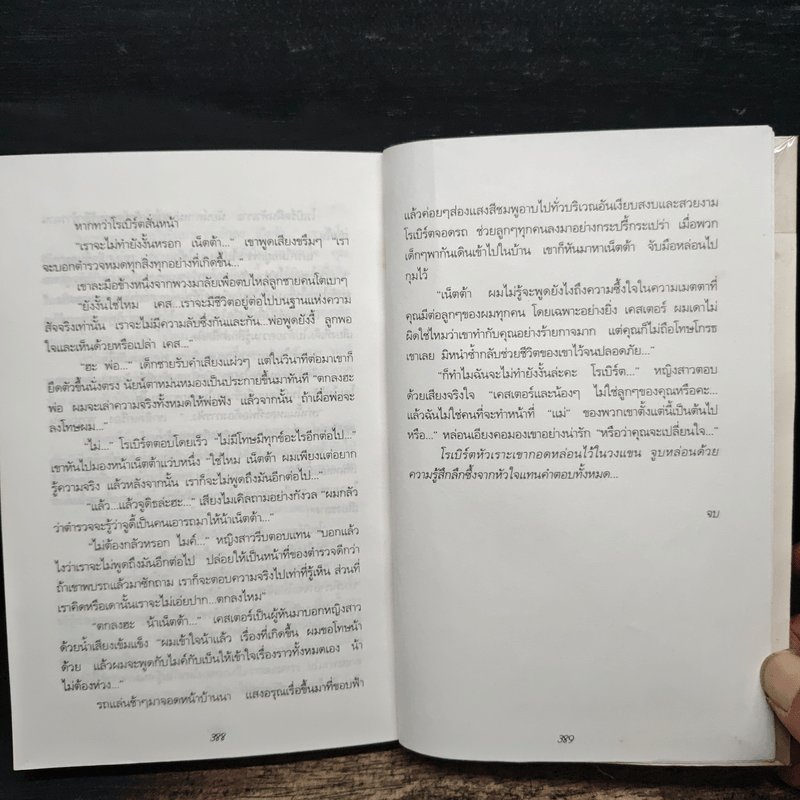 หากทว่าโรเบิร์ตสั่นหน้า
"เราจะไม่ทำยังงั้นหรอก เน็ตต้า..." เขาพูดเสียงขรึมๆ "เรา
จะบอกตำรวจหมดทุกสิ่งทุกอย่างที่เกิดขึ้น..."
เขาละมือข้างหนึ่งจากพวงมาลัยเพื่อตบไหล่ลูกชายคนโตเบาๆ
"ยังงั้นใช่ไหม เคส...เราจะมีชีวิตอยู่ต่อไปบนฐานแห่งความ
สัจจริงเท่านั้น เราจะไม่มีความลับซึ่งกันและกัน...พ่อพูดยังงี้ ลูกพอ
ใจและเห็นด้วยหรือเปล่า เคส..."
"ฮะ พ่อ..." เด็กชายรับคำเสียงแผ่วๆ แต่ในวินาทีต่อมาเขาก็
ยืดตัวขึ้นนั่งตรง นัยน์ตาหม่นหมองเป็นประกายขึ้นมาทันที "ตกลงฮะ
พ่อ ผมจะเล่าความจริงทั้งหมดให้พ่อฟัง แล้วจากนั้น ถ้าเผื่อพ่อจะ
ลงโทษผม..."
"ไม่..." โรเบิร์ตตอบโดยเร็ว "ไม่มีโทษมีทุกข์อะไรอีกต่อไป..."
เขาหันไปมองหน้าเน็ตต้าแว่บหนึ่ง "ใช่ไหม เน็ตต้า ผมเพียงแต่อยาก
รู้ความจริง แล้วหลังจากนั้น เราก็จะไม่พูดถึงมันอีกต่อไป..."
"แล้ว...แล้วจูดิธล่ะฮะ..." เสียงไมเคิลถามอย่างกังวล "ผมกลัว
ว่าตำรวจจะรู้ว่าจูดี้เป็นคนเอารถมาให้น้าเน็ตต้า..."
"ไม่ต้องกลัวหรอก ไมค์..." หญิงสาวรีบตอบแทน "บอกแล้ว
ไงว่าเราจะไม่พูดถึงมันอีกต่อไป ปล่อยให้เป็นหน้าที่ของตำรวจดีกว่า
ถ้าเขาพบรถแล้วมาซักถาม เราก็จะตอบความจริงไปเท่าที่รู้เห็น ส่วนที่
เราคิดหรือเดานั้นเราจะไม่เอ่ยปาก...ตกลงไหม"
"ตกลงฮะ น้าเน็ตต้า..." เคสเตอร์เป็นผู้หันมาบอกหญิงสาว
ด้วยน้ำเสียงเข้มแข็ง "ผมเข้าใจน้าแล้ว เรื่องที่เกิดขึ้น ผมขอโทษน้า
ด้วย แล้วผมจะพูดกับไมค์กับเบ็นให้เข้าใจเรื่องราวทั้งหมดเอง น้า
ไม่ต้องห่วง..."
รถแล่นช้าๆมาจอดหน้าบ้านนา แสงอรุณเรื่อขึ้นมาที่ขอบฟ้า
388
แล้วค่อยๆส่องแสงสีชมพูอาบไปทั่วบริเวณอันเงียบสงบและสวยงาม
โรเบิร์ตจอดรถ ช่วยลูกๆทุกคนลงมาอย่างกระปรี้กระเปร่า เมื่อพวก
เด็กๆพากันเดินเข้าไปในบ้าน เขาก็หันมาหาเน็ตต้า จับมือหล่อนไป
กุมไว้
"เน็ตต้า ผมไม่รู้จะพูดยังไงถึงความซึ้งใจในความเมตตาที่
คุณมีต่อลูกๆของผมทุกคน โดยเฉพาะอย่างยิ่ง เคสเตอร์ ผมเดาไม่
ผิดใช่ไหมว่าเขาทำกับคุณอย่างร้ายกาจมาก แต่คุณก็ไม่ถือโทษโกรธ
เขาเลย มิหนำซ้ำกลับช่วยชีวิตของเขาไว้จนปลอดภัย..."
"ก็ทำไมฉันจะไม่ทำยังงั้นล่ะคะ โรเบิร์ต..." หญิงสาวตอบ
ด้วยเสียงจริงใจ "เคสเตอร์และน้องๆ ไม่ใช่ลูกๆของคุณหรือคะ...
แล้วฉันไม่ใช่คนที่จะทำหน้าที่ "แม่" ของพวกเขาตั้งแต่นี้เป็นต้นไป
หรือ..." หล่อนเอียงคอมองเขาอย่างน่ารัก "หรือว่าคุณจะเปลี่ยนใจ..."
โรเบิร์ตหัวเราะเขากอดหล่อนไว้ในวงแขน จูบหล่อนด้วย
ความรู้สึกลึกซึ้งจากหัวใจแทนคำตอบทั้งหมด...
จบ
389